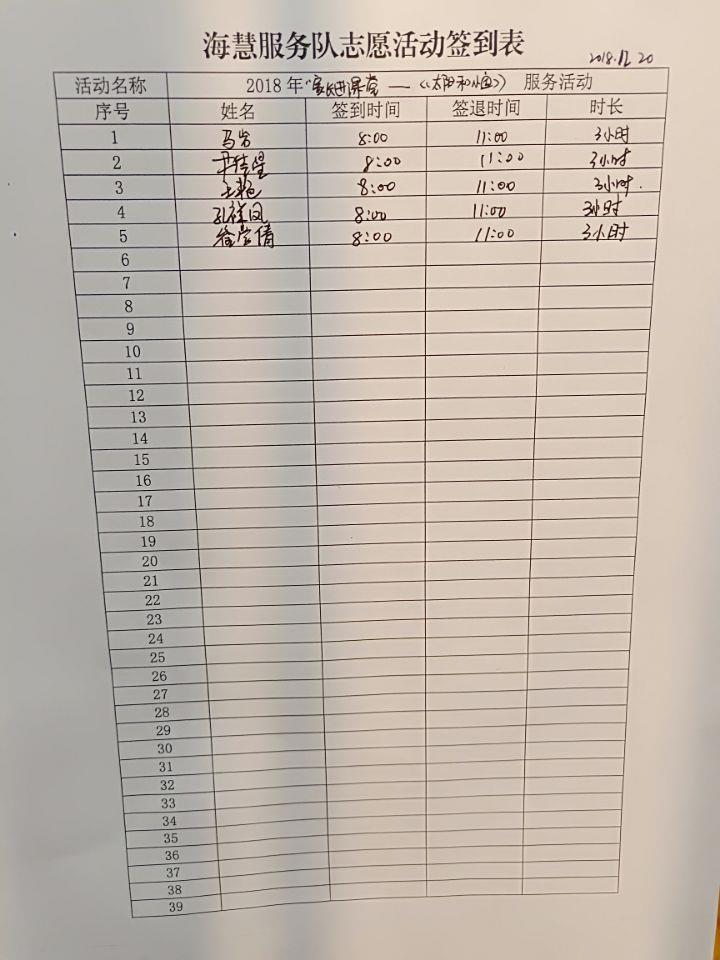 海慧服务队志愿活动签到表
2018.12.20
活动名称 2018年“家长进课堂——《太阳和恒》” 服务活动
序号 姓名 签到时间 签退时间 时长
1 马岩 8:00 11:00 3小时
2 8:00 11:00 3小时
3 王艳 8:00 11:00 3小时.
4 孔祥凤 8:00 11:00 3小时
5 徐雪倩 8:00 11:00 3小时
6
7
8
9
10
11
12
13
14
15
16
17
18
19
20
21
22
23
24
25
26
27
28
29
30
31
32
33
34
35
36
37
38
39